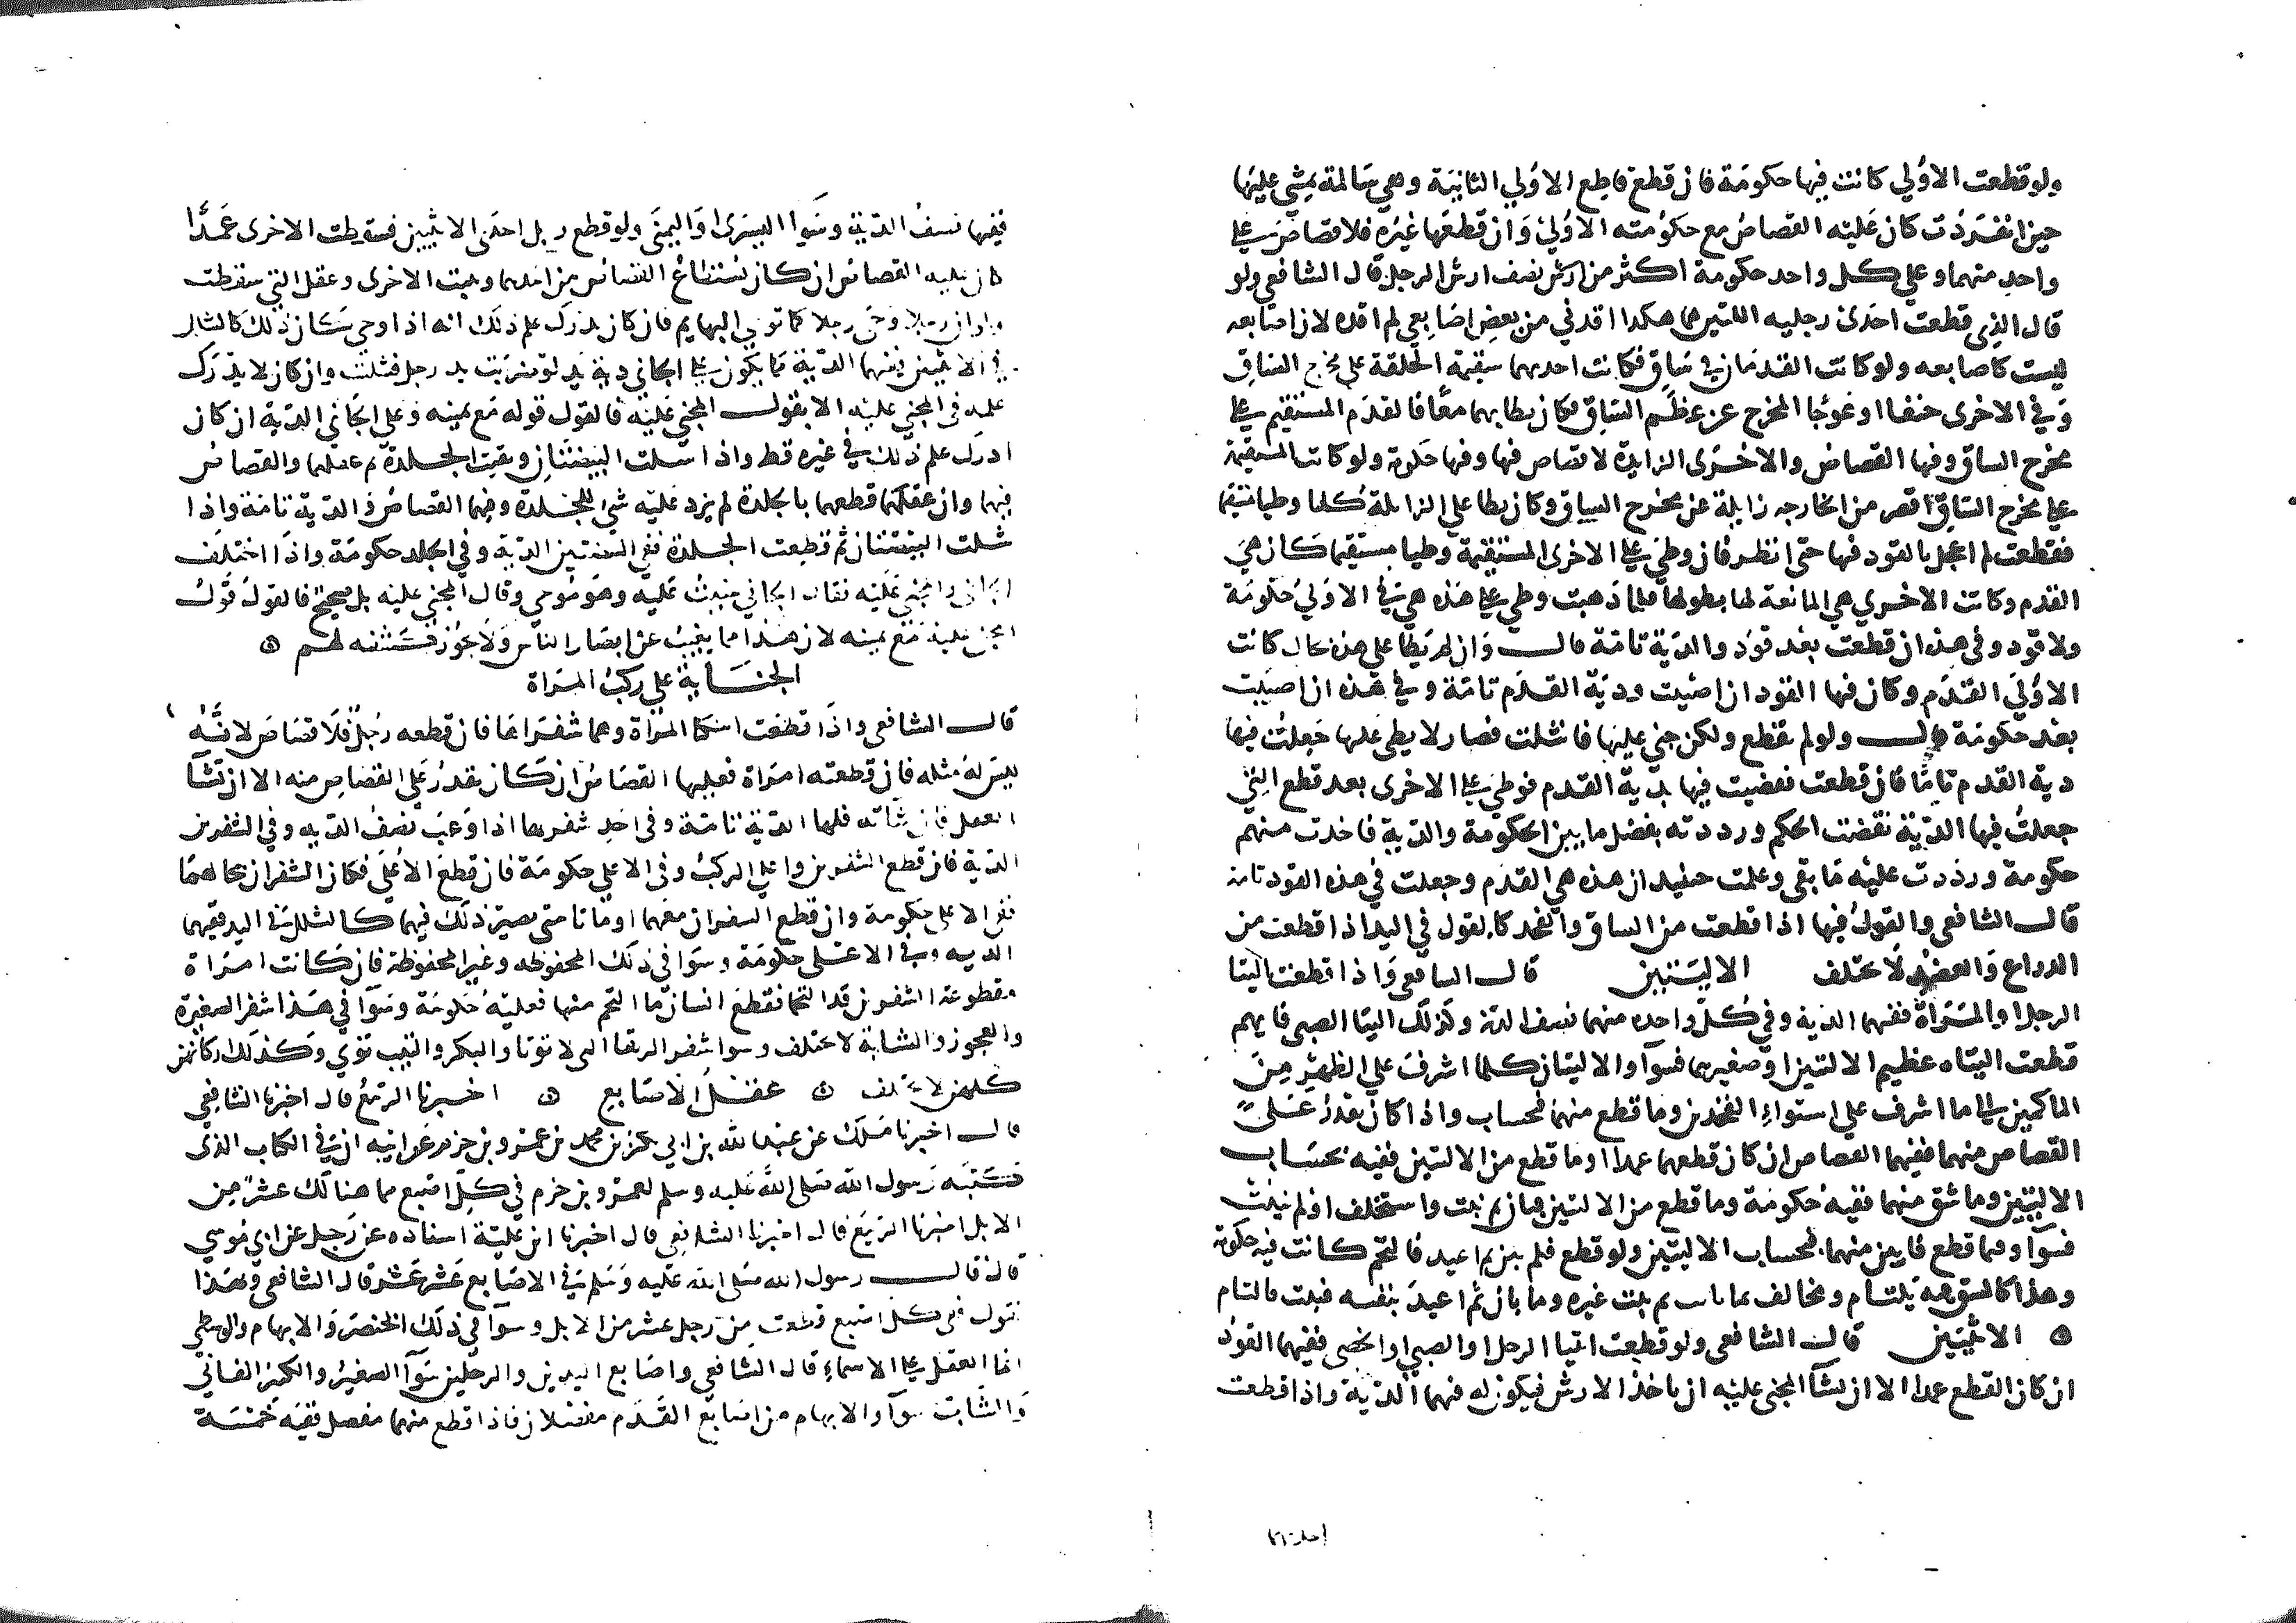 ولو قطعت الاولي كانت فيها حكومة فان قطع قاطع الاولي الثانية وهي سالمة يمشي عليها
حين انفردت كان عليه القصاص مع حكومته الاولي وان قطعها غيره فلا قصاص علي
واحد منهما وعلي كل واحد حكومة اكثر من ارش نصف ارش الرجل قال الشافعي ولو
قال الذي قطعت احدى رجليه اللتين هما هكذا اقدني من بعض اصابعي لم اقده لان اصابعه
ليست كاصابعه ولو كانت القدمان في ساق فكانت احدىهما مستقيمة الخلقة على مخرج الساق
وفي الاخرى حنفا او عوجا المخرج عن عظم الساق فكان يطا بهما معا فالقدم المستقيم علي
مخرج الساق وفيها القصاص والاخرى الزايدة لا قصاص فيها وفيها حكومة ولو كانت المستقيمة
على مخرج الساق اقصر من الخارجه زايلة عن مخرج الساق وكان يطا علي الزايلة كلها وطيا مستقيما
فقطعت لم اعجل بالقود فيها حتى انظر فان وطي علي الاخرى المستقيمة وطيا مستقيما كان هي
القدم وكانت الاخري هي المانعة لها بطولها فلما ذهبت وطي علي هذه هي في الاولي حكومة
ولا قود وفي هذه ان قطعت بعد قود والدية تامة قال وان لم يطا على هذه بحال كانت
الاولي القدم وكان فيها القود ان اصيبت ودية القدم تامة وفي هذه ان اصيبت
بعد حكومة قال ولو لم تقطع ولكن جني عليها فاشلت فصار لا يطي عليها جعلت فيها
دية القدم تاما فان قطعت فقضيت فيها بدية القدم فوطي علي الاخرى بعد قطع التي
جعلت فيها الدية نقضت الحكم ورددته بفضل ما بين الحكومة والدية فاخذت منهم
حكومة ورددت عليه ما بقي وعلمت حينيذ ان هذه هي القدم وجعلت في هذه القود تامه
قال الشافعي والقول فيها اذا قطعت من الساق والفخد كالقول في اليد اذا قطعت من
الدراع والعضد لا يختلف الاليتين قال الشافعي واذا قطعت اليتا
الرجل او المراة ففيهما الدية وفي كل واحده منهما نصف الدية وكذلك اليتا الصبي فايهم
قطعت اليتاه عظيم الاليتين او صغيرهما فسوآ والاليتان كلما اشرف علي الظهر من
الماكمين الى ما اشرف علي استواء الفخدين وما قطع منهما فبحساب واذا كان يقدر علي
القصاص منهما ففيهما القصاص ان كان قطعهما عمدا وما قطع من الاليتين ففيه بحساب
الاليتين وما شق منهما ففيه حكومة وما قطع من الاليتين فبان ثم نبت واستخلف او لم ينبت
فسوآ وفيما قطع فابين منهما فبحساب الاليتين ولو قطع فلم يبن ثم اعيد فالتحم كانت فيه حكومة
وهذا كالشق فيه يلتام ومخالف لما بان ثم نبت غيره وما بان ثم اعيد بنفسه فثبت فالتام
الانثيين قال الشافعي ولو قطعت انثيا الرجل او الصبي او الخصي ففيهما القود
ان كان القطع عمدا الا ان يشآ المجني عليه ان ياخذ الارش فيكون له فيهما الدية واذا قطعت
ففيها نصف الدية وسوا اليسرى واليمنى ولو قطع رجل احدى الانثيين فسقطت الاخرى عمدا
كان عليه القصاص ان كان يستطاع القصاص من احدهما وثبتت الاخرى وعقل التي سقطت
ولو ان رجلا وجى رجلا كما توجى البهايم فان كان يدرك علم ذلك انه اذا وجي كان ذلك كالشلل
في الانثيين ففيهما الدية كما يكون علي الجاني دية يد لو ضربت يد رجل فشلت وان كان لا يدرك
علمه في المجني عليه الا بقول المجني عليه فالقول قوله مع يمينه وعلي الجاني الدية ان كان
ادرك علم ذلك في غيره قط واذا سلت البيضتان وبقيت الجلدة تم عقلهما والقصاص
فيهما وان عقلهما قطعهما بالجلدة لم يزد عليه شي للجلدة وفيهما القصاص او الدية تامة واذا
سلت البيضتان ثم قطعت الجلدة ففي البيضتين الدية وفي الجلد حكومة واذا اختلف
الجاني والمجني عليه فقال الجاني جنيت عليه وهو موجي وقال المجني عليه بل صحيح فالقول قول
المجني عليه مع يمينه لان هذا مما يغيب عن ابصار الناس ولا يجوز كشفه لهم
الجناية علي ركب المراة
قال الشافعي واذا قطعت اسكتا المراة وهما شفراها فان قطعه رجل فلا قصاص لانه
ليس له مثله فان قطعته امراة فعليها القصاص ان كان يقدر علي القصاص منه الا ان تشآ
العقل فان شاته فلها الدية تامة وفي احد شفريها اذا اوعب نصف الديه وفي الشفرين
الدية فان قطع الشفرين واعلي الركب ففي الاعلي حكومة فان قطع الاعلي فكان الشفران بحالهما
ففي الاعلى حكومة وان قطع الشفران معهما او ماتا حتى يصير ذلك فيهما كالشلل في اليد ففيهما
الديه وفي الاعلى حكومة وسوا في ذلك المخفوظه وغير المحفوظة فان كانت امراة
مقطوعة الشفرين قد التحما فقطع انسان ما التحم منها فعليه حكومة وسوآ في هذا شفر الصغيرة
والعجوز والشابة لا تختلف وسوا شفر الرتقا التي لا توتا والبكر والثيب توتي وكذلك اركانهن
كلهن لا يختلف عقل الاصابع اخبرنا الربيع قال اخبرنا الشافعي
قال اخبرنا ملك عن عبد الله بن ابي بكر بن محمد بن عمرو بن حزم عن ابيه ان في الكتاب الذي
كتبه رسول الله صلى الله عليه وسلم لعمرو بن حزم في كل اصبع مما هنالك عشر من
الابل اخبرنا الربيع قال اخبرنا الشافعي قال اخبرنا ابن علية اسناده عن رجل عن ابي موسي
قال قال رسول الله صلى الله عليه وسلم في الاصابع عشر عشر قال الشافعي وبهذا
نقول ففي كل اصبع قطعت من رجل عشر من الابل وسوآ في ذلك الخنصر والابهام والوسطي
انما العقل علي الاسماء قال الشافعي واصابع اليدين والرجلين سوآ الصغير والكبير الفاني
والشاب سوآ والابهام من اصابع القدم مفصلان فاذا قطع منهما مفصل ففيه خمسة